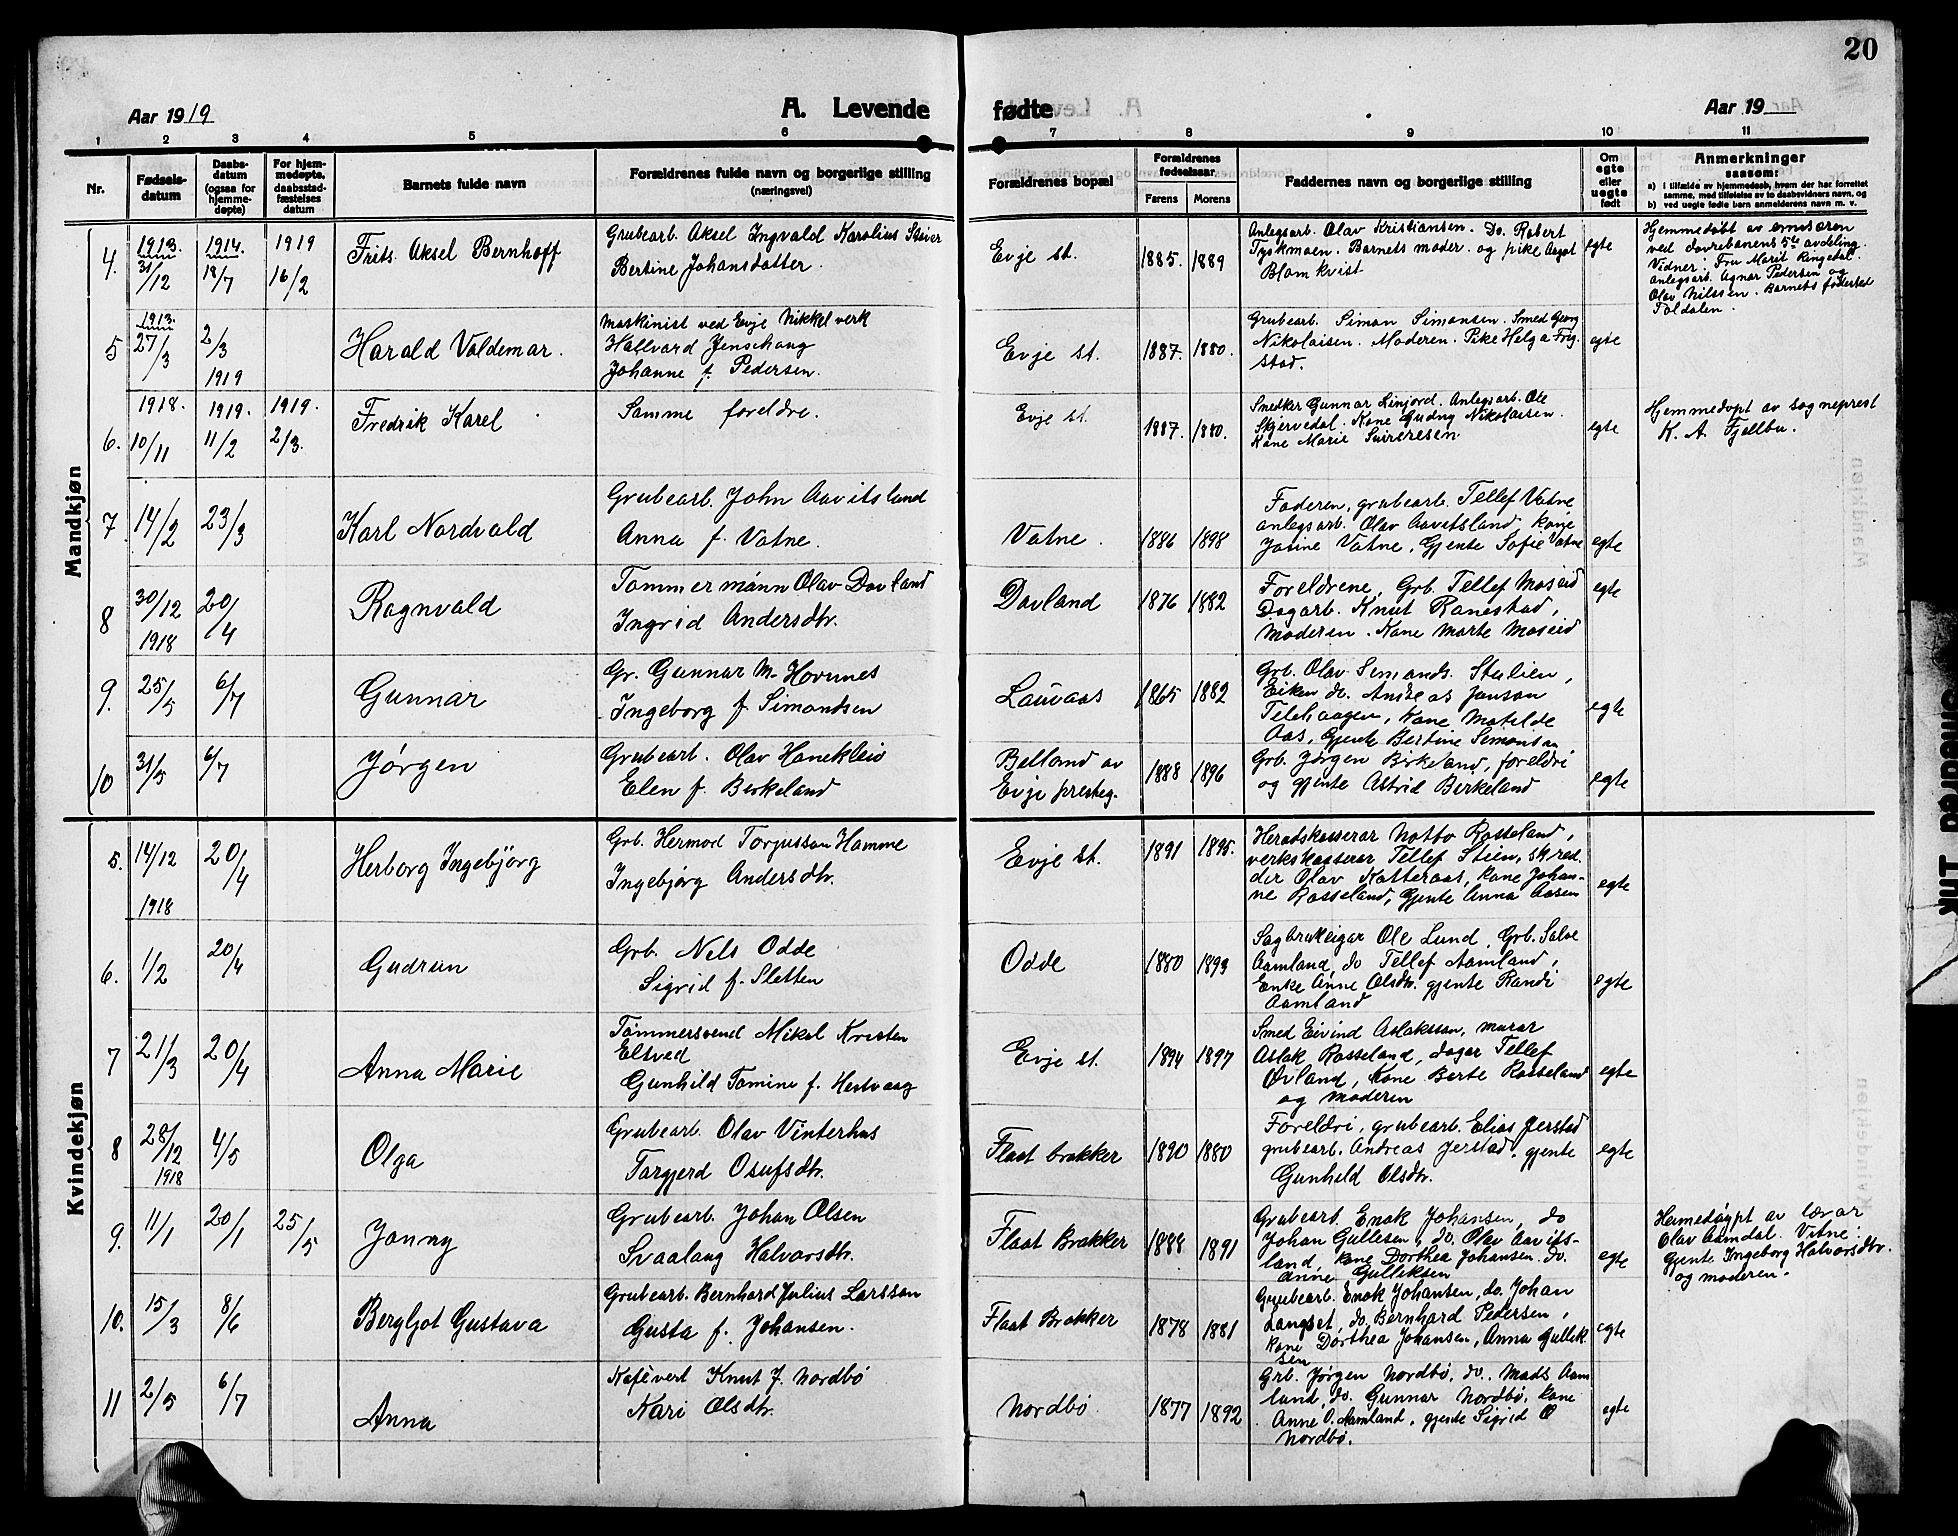 20
Aar 1919
A. Levende
fødte
Aar 19
1 2 3 4 5 6 7 8 9 10 11
Nr.
Fødselsdatum
Daabsdatum (ogsaa for hjemmedøpte)
For hjemmedøpte, daabsstadfæstelses datum
Barnets fulde navn
Forældrenes fulde navn og borgerlige stilling (næringsvei)
Forældrenes bopæl
Forældrenes fødselsaar
Farens Morens
Faddernes navn og borgerlige stilling
Om egte eller uegte født
Anmerkninger saasom:
a) i tilfælde av hjemmedaab, hvem der har forrettet samme, med tilføielse av to daabsvidners navn, og
b) ved uegte fødte barn anmelderens navn m. v.
Mandkjøn
4.
1913. 31/12
1914. 18/7
1919 16/2
Frits Aksel Bernhoff
Grubearb. Aksel Ingvald Karolius
Bertine Johansdatter.
Evje st.
1885. 1889
Anlegsarb. Olav Kristiansen. Do. Robert
Tyskmoen. Barnets moder. og pike Aagot
Blomkvist
egte
Hjemmedøbt av
ved dovrebanens 5te avdeling.
Vidner: Fru Marit Ringedal.
Anlegsarb. Agnar Pedersen og
Olav Nilssen. Barnets fødested
Toldalen.
5
1913. 27/3
2/3 1919
Harald Valdemar.
Maskinist ved Evje Nikkelverk
Hallvard Jenshaug
Johanne f. Pedersen.
Evje st.
1887. 1880.
Grubearb. Simon Simonsen. Smed Georg
Nikolaisen. Moderen. Pike Helga Frig-
stad.
egte
6.
1918. 10/11
1919. 11/2
1919. 2/3.
Fredrik Karel
Samme foreldre.
Evje st.
1887. 1880.
Snedker Gunnar Linjord. Anlegsarb. Ole
Skjervedal. Kone Gudny Nikolaisen.
Kone Marie
egte
Hjemmedøpt av sogneprest
K. A. Fjellbu.
7
14/2
23/3
Karl Nordvald
Grubearb. John Aavitsland
Anna f. Vatne.
Vatne.
1886 1898
Faderen, grubearb. Tellef Vatne,
anlegsarb. Olav Aavitsland, kone
Josine Vatne, Gjente Sofie Vatne
egte
8
30/12 1918
20/4
Ragnvald
Tømmermann Olav Dovland
Ingrid Andersdtr.
Dovland
1876 1882
Foreldrene, Grb. Tellef Moseid
Dagarb. Knut Ranestad,
Moderen. Kone Marte Moseid
egte
9.
25/5
6/7
Gunnar
Gr. Gunnar M. Hovnnes
Ingeborg f. Simontsen
Lauvaas
1865 1882
Grb. Olav Simonds. Stulien,
Eiken do. Andreas Jonson
Telehaagen, Kone Matilde
Aas, Gjente Bertine Simonsen
egte
10
31/5
6/7
Jørgen
Grubearb. Olav Honekleiv
Elen f. Birkeland
Belland av
Evje presteg.
1888 1896
Grb. Jørgen Birkeland, foreldri
og gjente Astrid Birkeland
egte
Kvindekjøn
5.
14/12 1918
20/4
Herborg Ingebjørg
Grb. Hermod Torjusson Homme
Ingebjørg Andersdtr.
Evje st.
1891 1895.
Heradskasserar Notto Rosseland,
verkskasserar Tellef Stien, skred-
der Olav Katteraas, kone Johan-
ne Rosseland, Gjente Anna Aasen
egte
6.
1/2
20/4
Gudrun
Grb. Nils Odde
Sigrid f. Sletten
Odde
1880 1893
Sagbrukeigar Ole Lund, Grb. Salve
Aamland, do Tellef Aamland,
Enke Anne Olsdtr. gjente Randi
Aamland
egte
7
21/3
20/4
Anna Marie
Tømmersvend Mikal Kristen
Eltved
Gunhild Tomine f. Hestvaag
Evje st.
1894 1897
Smed Eivind Aslaksson, murar
Aslak Rosseland, dagar Tellef
Øvland, Kone Berte Rosseland
og moderen
egte
8
28/12 1918
4/5
Olga
Grubearb. Olav Vinterhus
Torgjerd Osufsdtr.
Flaat brakker
1890 1880
Foreldri, grubearb. Elias Jerstad
grubearb. Andreas Jerstad, gjente
Gunhild Olsdtr.
egte
9.
11/1
20/1
25/5
Jonny
Grubearb. Johan Olsen
Svaalaug Halvorsdtr.
Flaat Brakker
1888 1891
Grubearb. Enok Johansen, do
Johan Gullesen, do. Olav Aavits-
land, kone Dorthea Johansen. do.
Anne Gulleksen
egte
Heimedøypt av lærar
Olav Aamdal. Vitne:
Gjente Ingeborg Halvorsdtr.
og moderen.
10.
15/3
8/6
Bergljot Gustava
Grubearb. Bernhard Julius Larsson
Gusta f. Johansen.
Flaat Brakker
1878 1881
Grubearb. Enok Johansen, do. Johan
Langset, do. Bernhard Pedersen,
kone Dorthea Johansen, Anna Gullek-
sen
egte
11
2/5
6/7
Anna
Kafévert Knut J. Nordbø
Kari Olsdtr.
Nordbø
1877 1892
Grb. Jørgen Nordbø, do. Mads Aam-
land, do. Gunnar Nordbø, kone
Anne O. Aamland, gjente Sigrid O
Nordbø.
egte